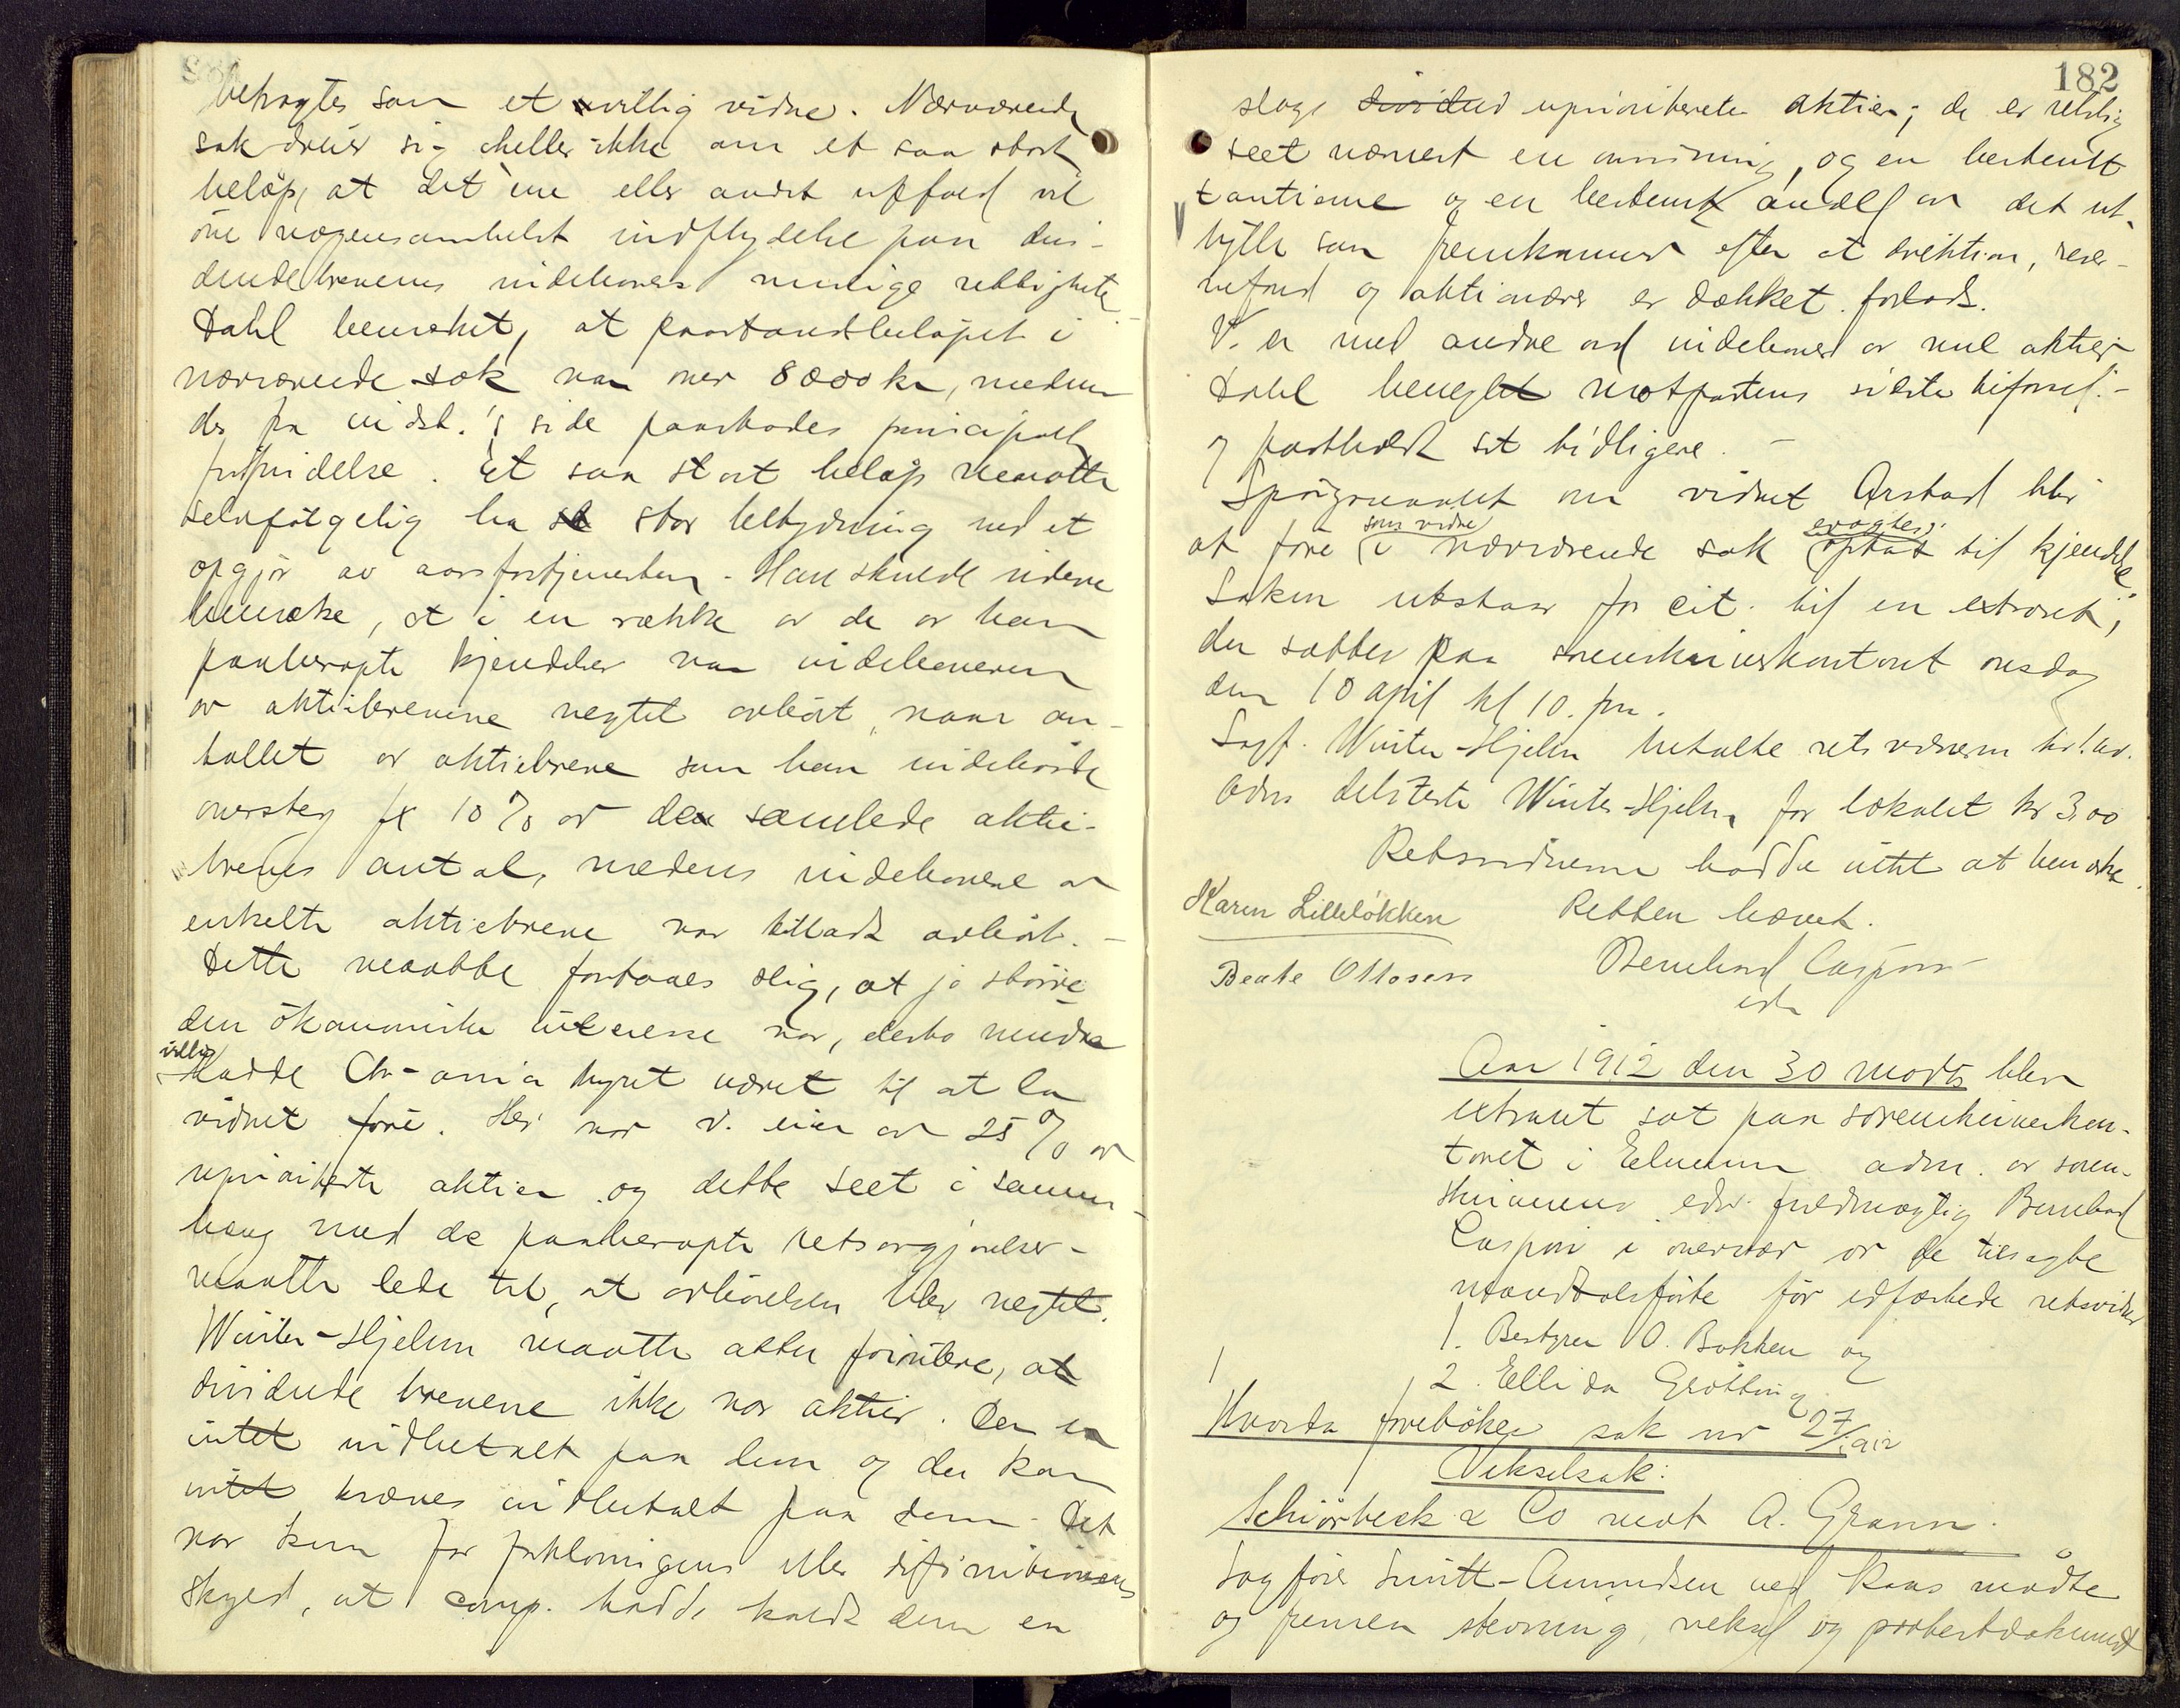 betragtes som et uvillig vidne. Nærværende
sak dreier sig heller ikke om et saa stort
beløp, at det ene eller andet utfald vil
öve nogensomhelst indflydelse paa divi-
dendebrevenes indehavers mulige rettigheter
Dahl bemerket, at paastandsbeløpet i
nærværende sak var over 8000 kr, medens
der fra indst.'s side paastodes principalt
frifindelse. Et saa stort beløp maatte
selvfølgelig ha stor betydning ved et
opgjør av aarsfortjenesten. Han skulde videre
bemerke, at i en række av de av ham
paaberopte kjendelser var indehaveren
av aktiebrevene negtet avhört, naar an-
tallet av aktiebreve som han indehavde
oversteg fx 10 % av den samlede aktie-
breves antal, medens indehavere av
enkelte aktiebreve var tilladt avhört. -
Dette maatte forstaaes slig, at jo större
den ökonomiske interesse var, desto mindre
villig
Hadde Chr-ania byret været til at la
vidnet före. Her var v. eier av 25 % av
uprioriterte aktier og dette seet i sammen-
hæng med de paaberopte retsavgjörelser -
maatte lede til, at avhörelsen blev negtet.
Winter-Hjelm maatte atter pointere, at
dividende brevene ikke var aktier. Der er
intet indbetalt paa dem og der kan
intet kræves indbetalt paa dem - Det
var kun for forklaringens eller definitionens
skyld, at comp. hadde kaldt dem en
182
slags dividend uprioriterte aktier; de er retslig
seet nærmest en anvisning, og en bestemt
tantieme og en bestemt andel av det ut-
bytte som fremkommer efter at direktion, reser-
vefond og aktionærer er dækket forlods.
V. er med andre ord indehaver av nul aktier
Dahl benegtet motpartens siste tilförsel. -
og fastholdt sit tidligere. -
Spörgsmaalet om vidnet Arstad blir
som vidne eragtes
at före i nærværende sak optat til kjendelse.
Saken utstaar for eit. til en extraret,
der sættes paa sorenskriverkontoret onsdag
den 10 april kl 10. fm.
Sagf. Winter-Hjelm betalte retsvidnerne
delsteste Winter-Hjelm for lokalet kr 3,00
Retsvidnerne hadde intet at bemerke.
Karen Lilleløkken Retten hævet.
Beate Ottosen Bernhard Caspari
edv
Aar 1912 den 30 marts blev
extraret sat paa sorenskriverkon-
toret i Elverum adm. av soren-
skriverens edsv. fuldmægtig Bernhard
Caspari i overvær av de tilsagte
mandtalsførte før edfæstede retsvidner
1. Bestyrer O. Bakken og
2. Ellida Grøtting
Hvorda forebökes sak nr 27/1912
Vekselsak:
Schiørbeck & Co mot A. Grann.
Sagfører Smitt-Amundsen ved Kaas mødte
og fremla stevning, veksel og protestdokument